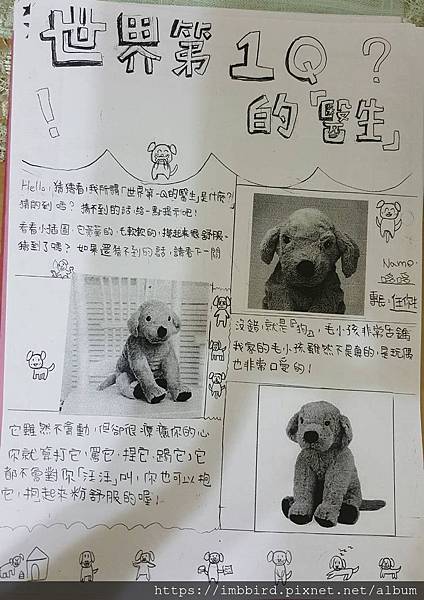 世界第1Q?
的「醫生」!
Hello,猜猜看,我所謂「世界第一Q的醫生」是什麼?
猜的到嗎?猜不到的話,給一點提示吧!
看看小插圖,它茸茸的,毛軟軟的,摸起來很舒服。
猜到了嗎?如果還猜不到的話,請看下一關
Name:
哈哈
專長:任傑
沒錯,就是「狗」,毛小孩非常吉鎷
我家的毛小孩雖然不是真的,是玩偶
也非常口愛的!
它雖然不會動,但卻很療癒你的心
你就算打它、罵它、捏它、踢它,它
都不會對你「汪汪」叫,你也可以抱
它,抱起來粉舒服的喔!
https://imbbird.pixnet.net/album